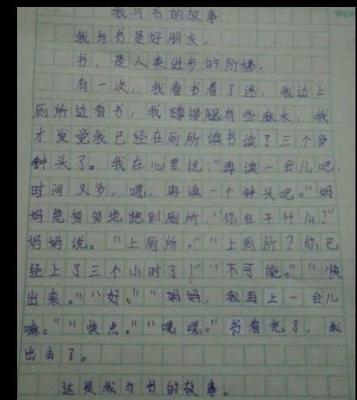 我与书的故事
我与书是好朋友。
书，是人类进步的阶梯。
有一次，我看书看了迷，我边上
厕所边看书，我蹲得腿有些麻木，我
才发觉我已经在厕所读书读了三个多
钟头了。我在心里说：“再读一会儿吧，
时间又多，嗯，再读一个钟头吧。”妈
妈急匆匆地跑到厕所，“你在干什么？”
妈妈说。“上厕所。”“上厕所？你已
经上了三个小时了！”“不可能。”“快
出来。”“好。”“妈妈，我再上一会儿
嘛。”“快点。”“嘿嘿。”书看完了，我
出去了。
这是我与书的故事。